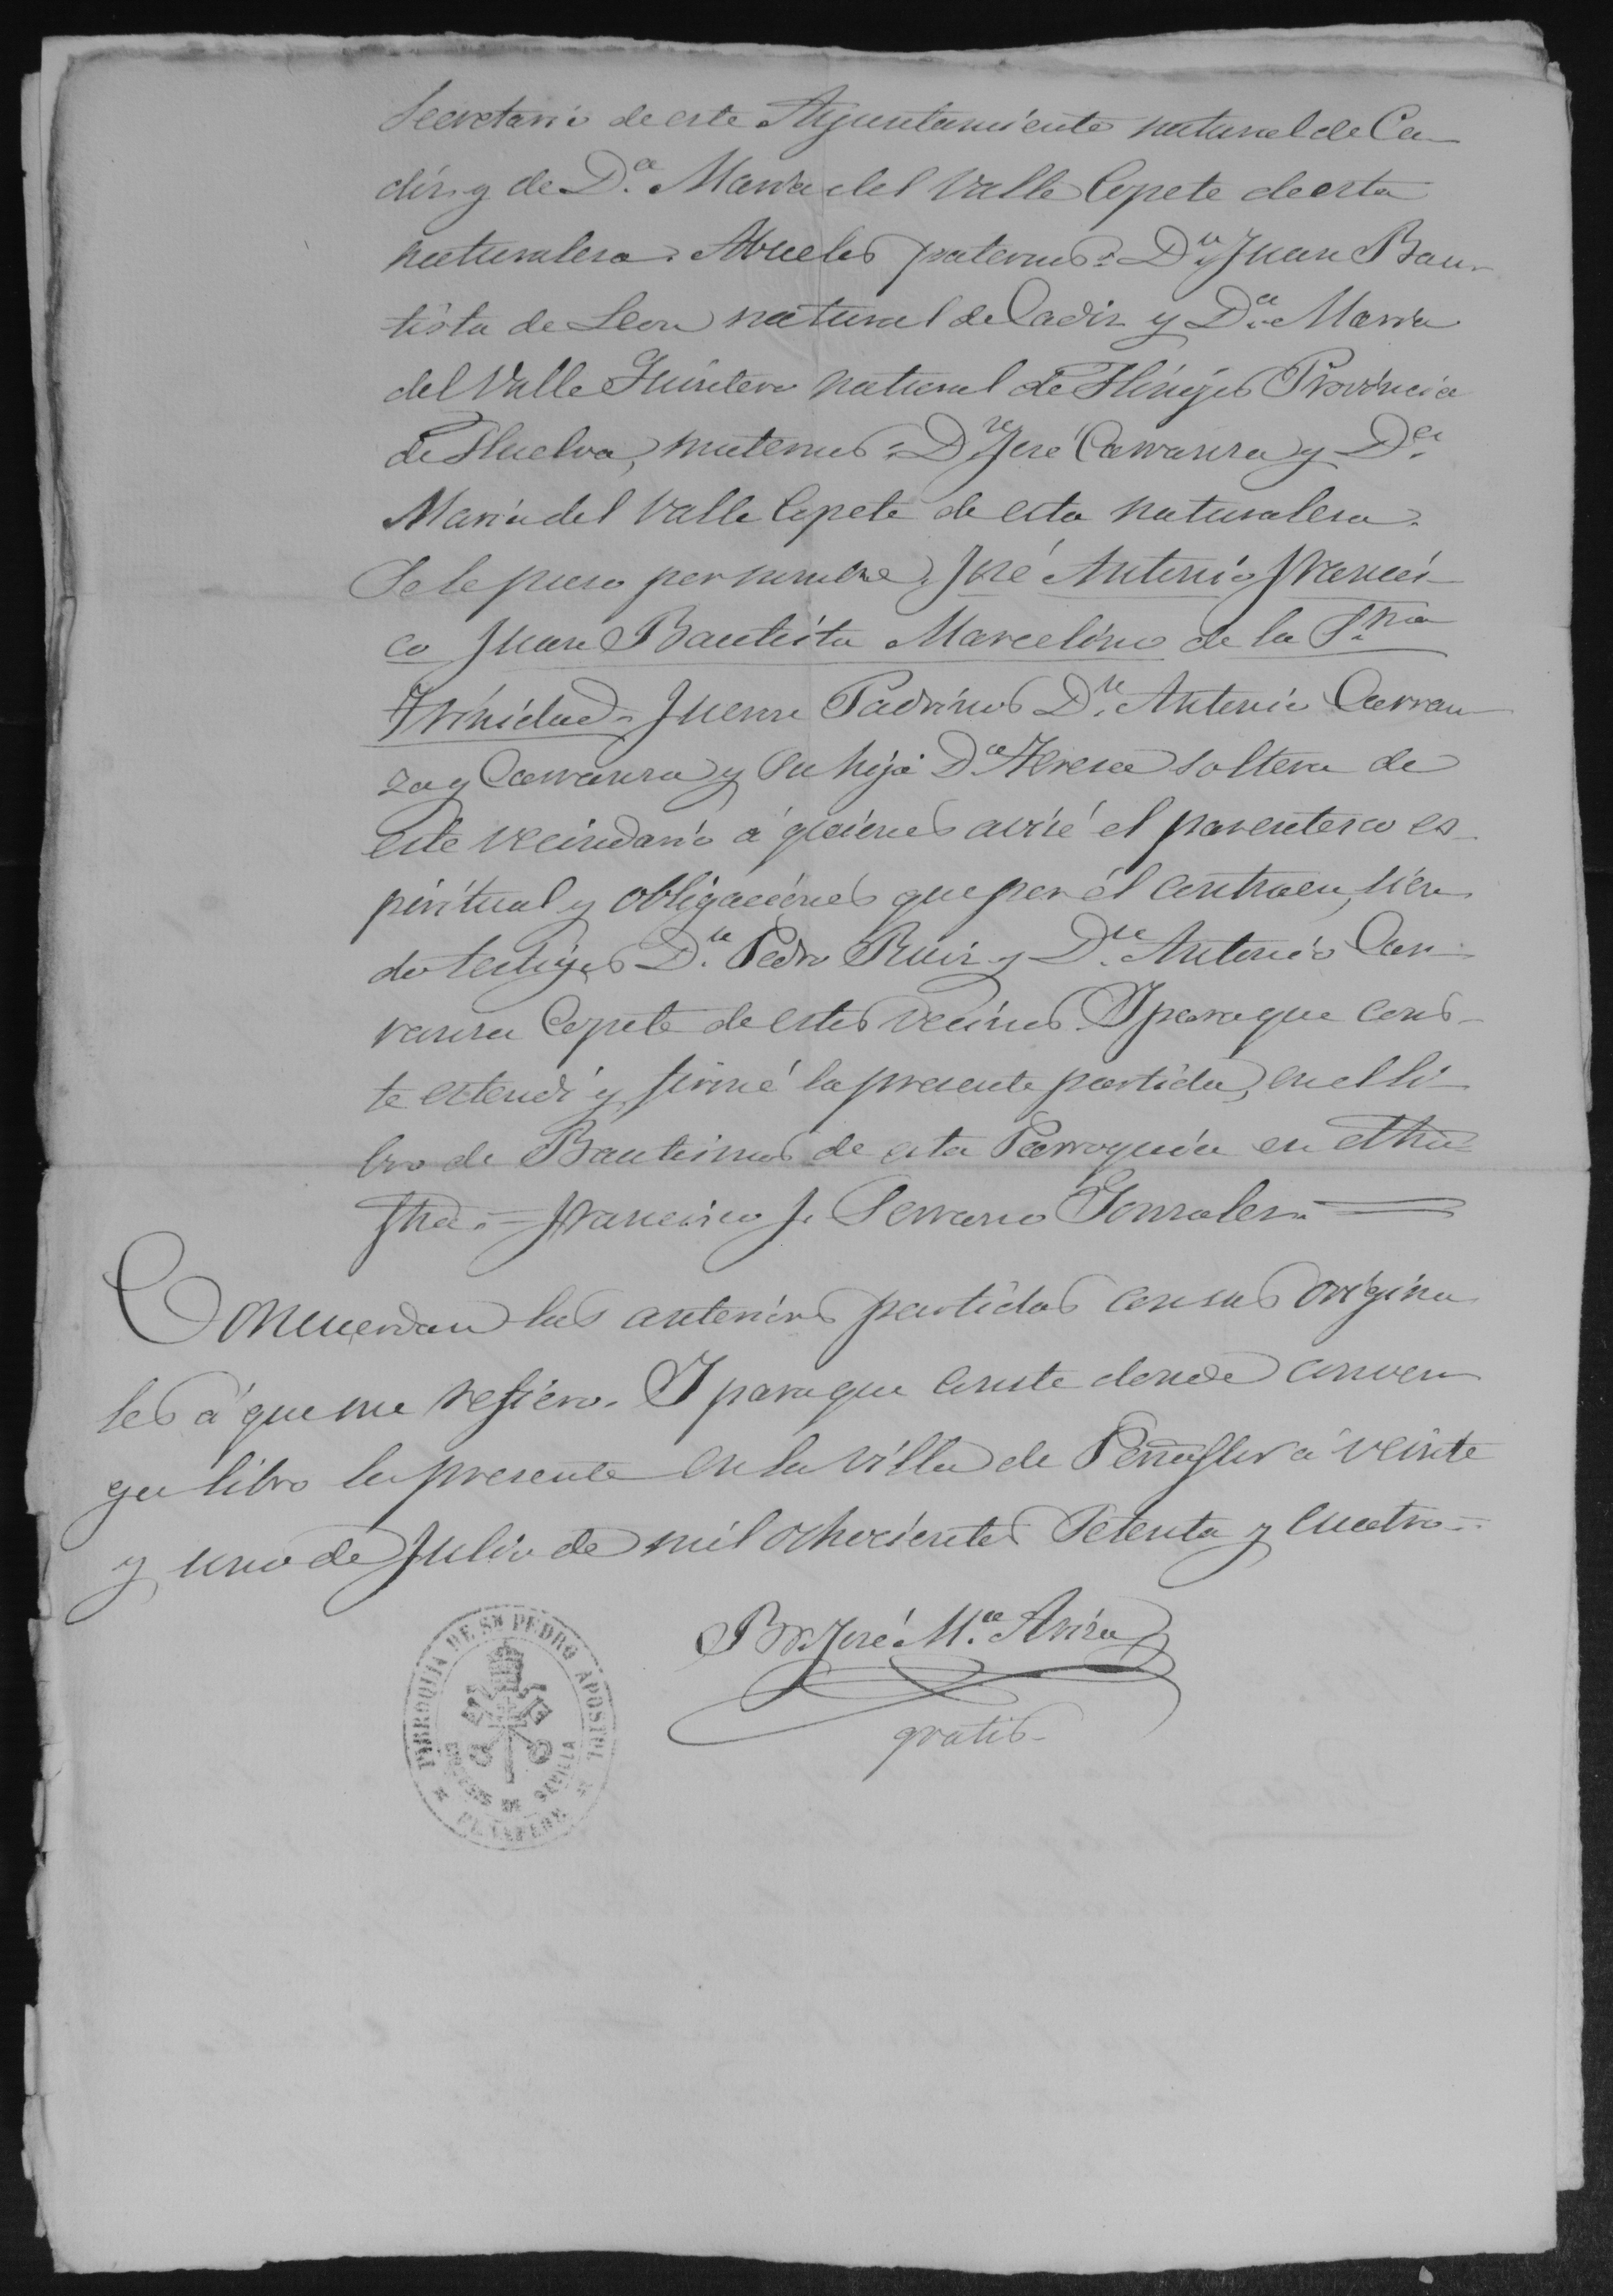 Secretario de este Ayuntamiento natural de Ca-
diz y de D.ª Maria del Valle Cepete de esta
naturaleza. Abuelos paternos: D.n Juan Bau-
tista de Leon natural de Cadiz y D.ª Maria
del Valle Quintero natural de Hinojos Provincia
de Huelva, maternos: D.n José Carranza y D.ª
Maria del Valle Cepete de esta naturaleza.
Se le puso por nombre, José Antonio Francis-
co Juan Bautista Marcelino de la S.ma
Trinidad. Fueron Padrinos D.n Antonio Carran-
za y Carranza y su hija D.ª Teresa soltera de
este vecindario á quienes avisé el parentesco es-
piritual y obligaciones que por él contraen, sien
do testigos D.n Pedro Ruiz y D.n Antonio Car-
ranza Cepete de estos vecinos. Y para que cons-
te estendí y firmé la presente partida, en el li-
bro de Bautismos de esta Parroquia en dha
fha. = Francisco J. Serrano Gonzalez. =
Concuerdan las anteriores partidas con sus origina
les á que me refiero. Y para que conste donde conven
ga libro la presente en la villa de Peñaflor á veinte
y uno de Julio de mil ochocientos setenta y cuatro =
Br. José M.ª Ariza
gratis
PARROQUIA DE SN PEDRO APOSTOL
DE SEVILLA